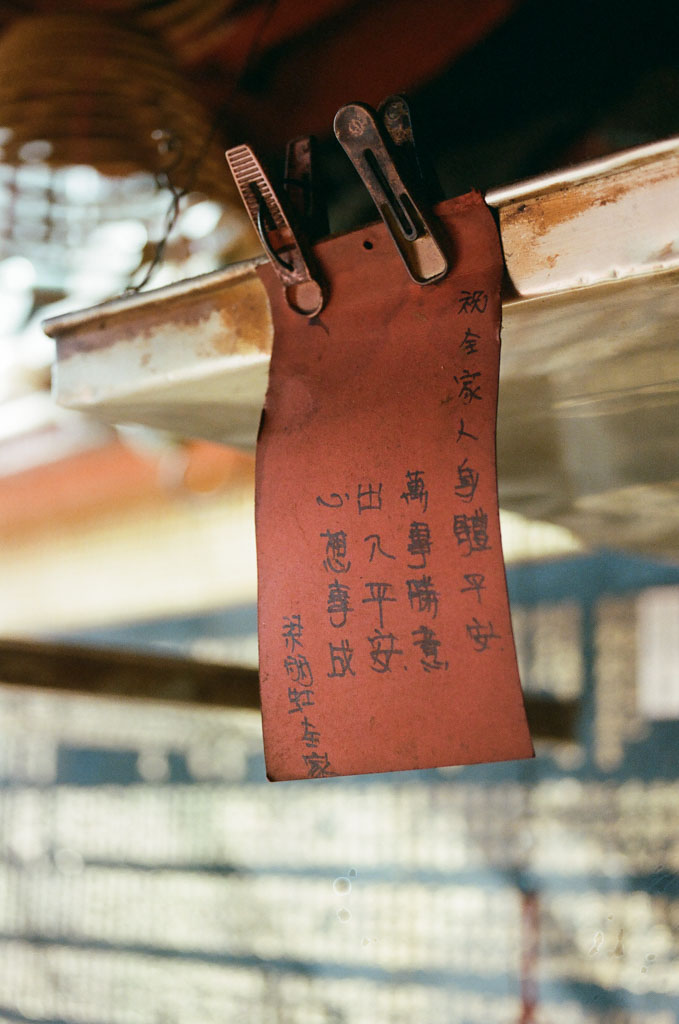 祝全家人身體平安
萬事勝意
出入平安
心想事成
全家